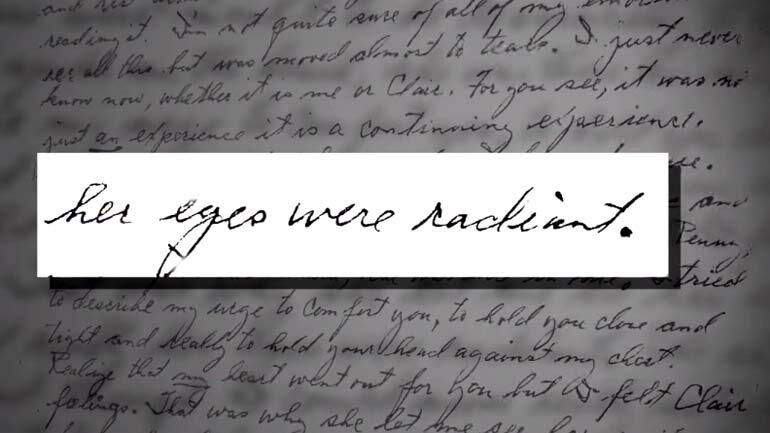 and his
reading it. I'm not quite sure of all of my
all this but was moved almost to tears. I just never
know now, whether it is me or Clair. For you see, it was no
just an experience it is a continuing experience.
her eyes were radiant.
and
Penny,
tried
to describe my urge to comfort you, to hold you close and
tight and really to hold your head against my chest.
Realize that my heart went out for you but as felt Clair
feelings. That was why she let me see